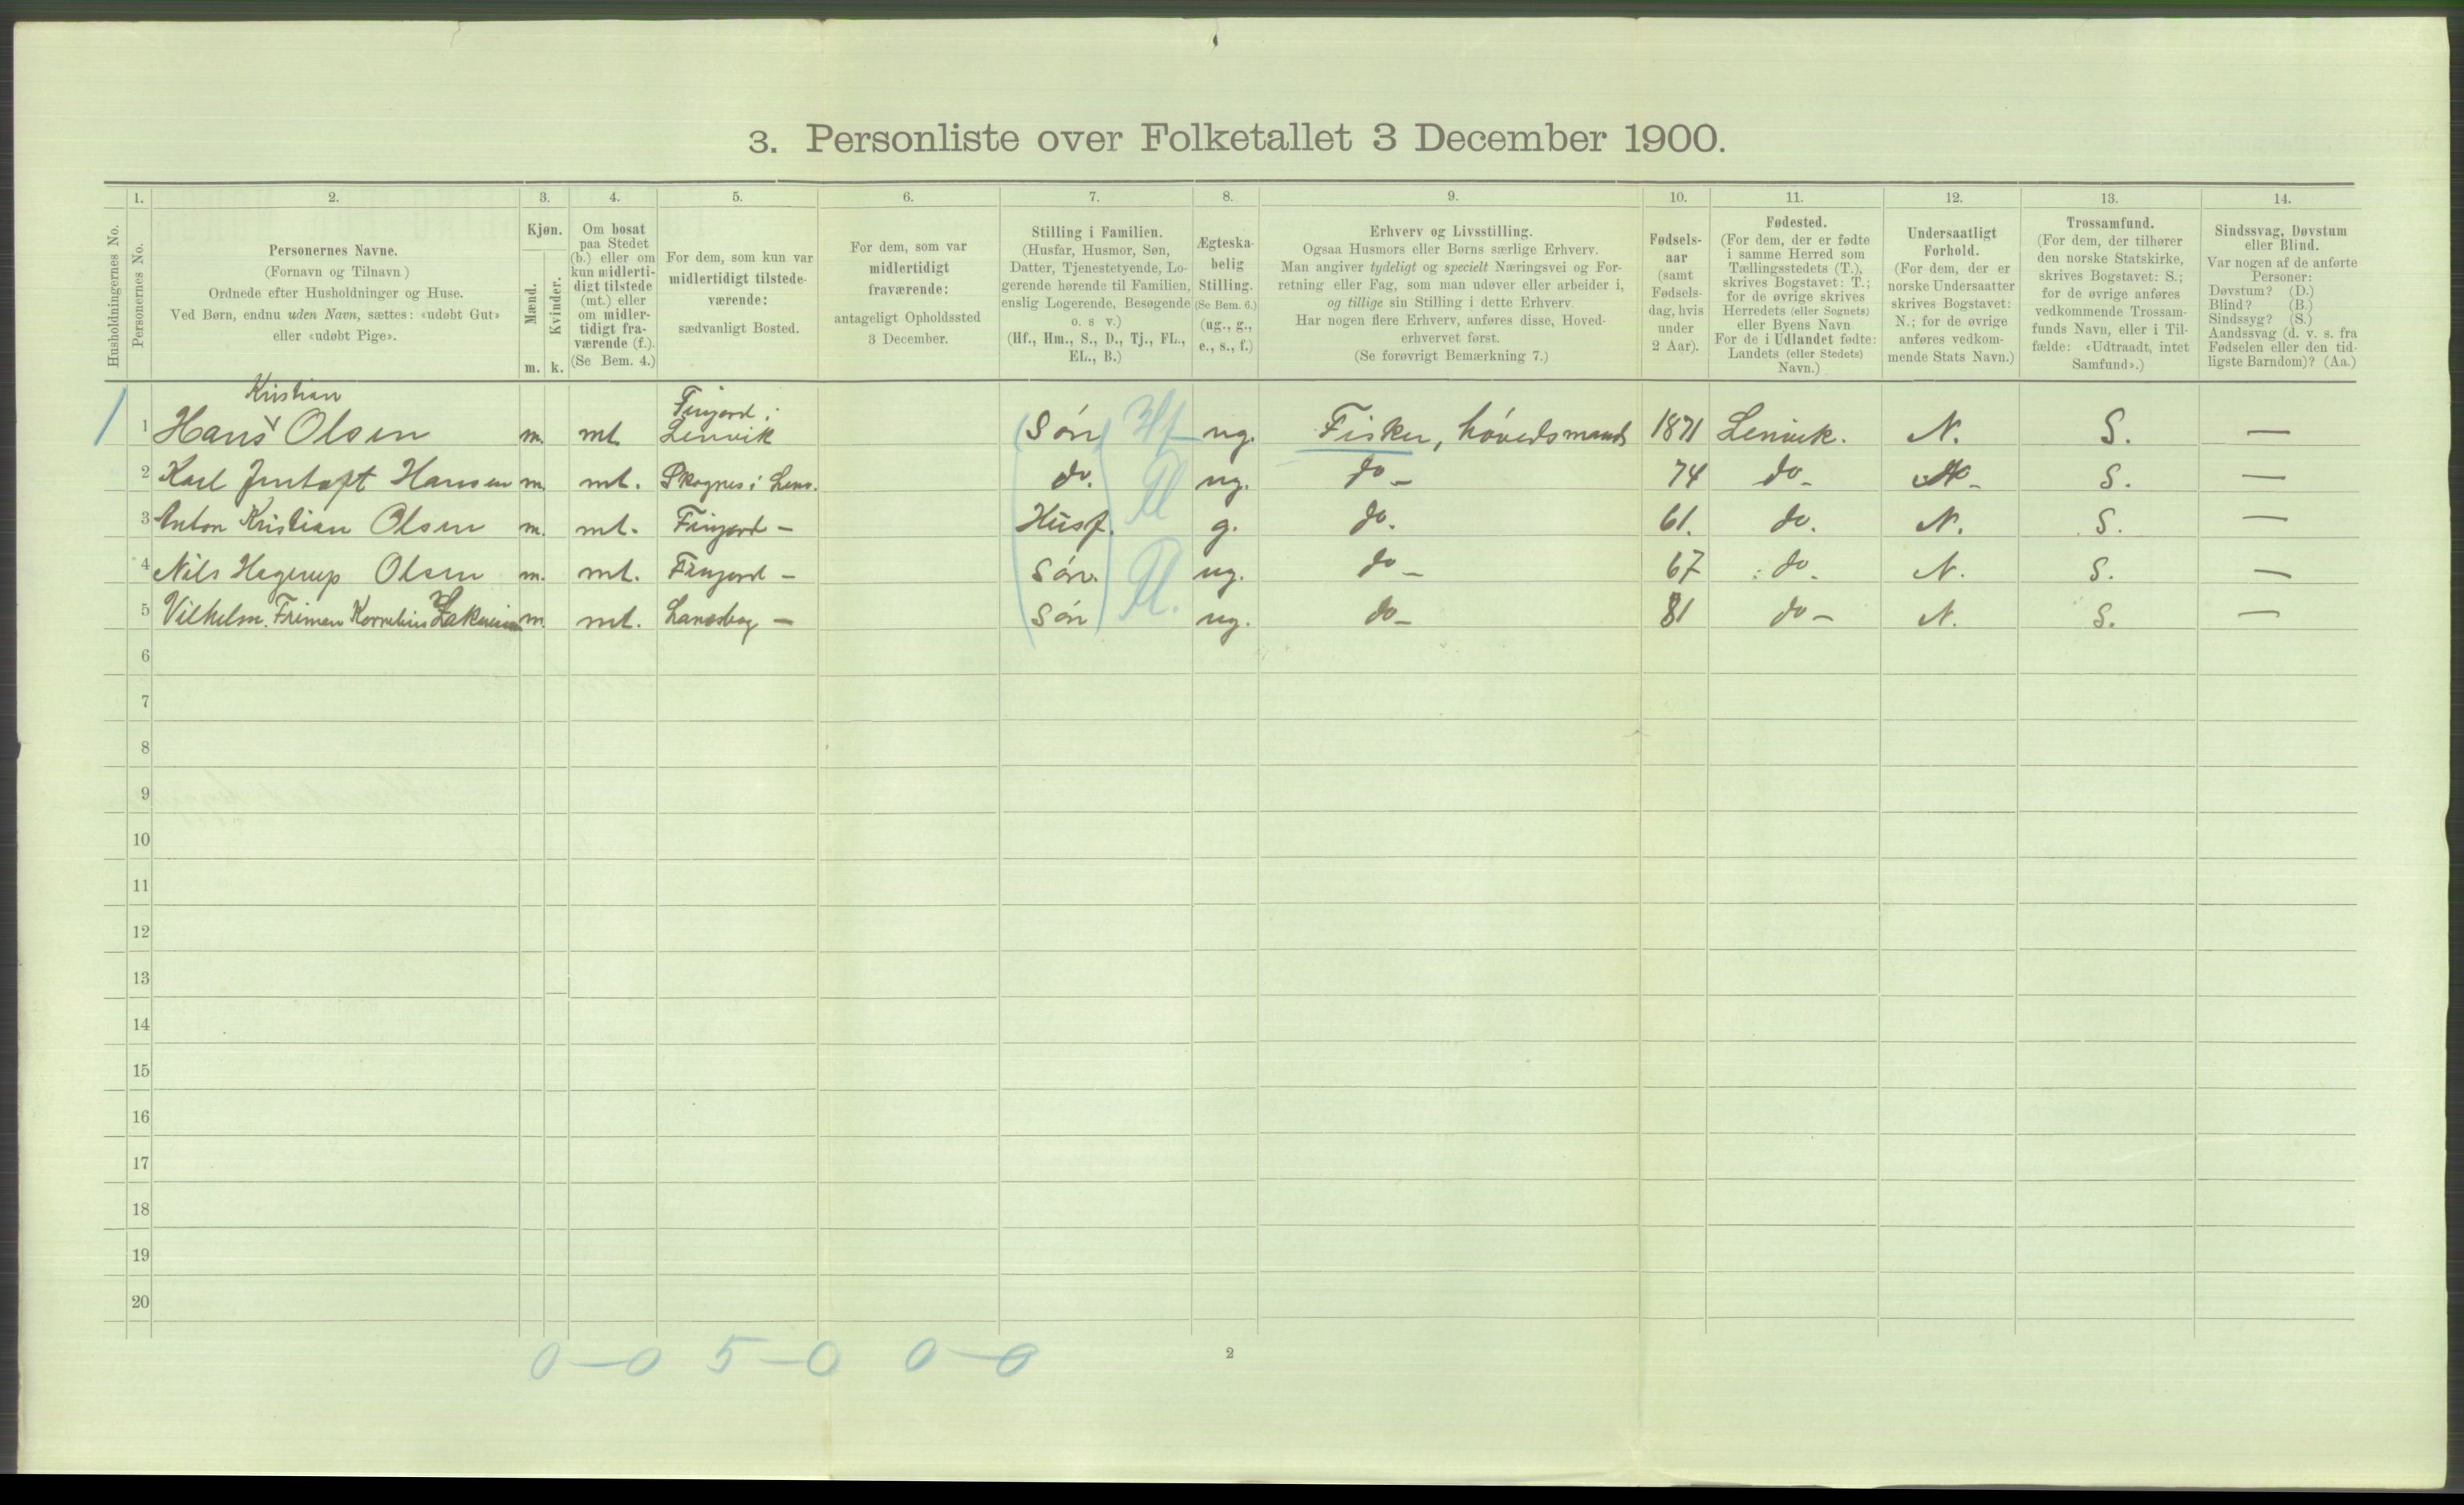 3. Personliste over Folketallet 3 December 1900.
1. 2. 3. 4. 5. 6. 7. 8. 9. 10. 11. 12. 13. 14.
Husholdningernes No.
Personernes No.
Personernes Navne.
(Fornavn og Tilnavn)
Ordnede efter Husholdninger og Huse.
Ved Børn, endnu uden Navn, sættes: «udøbt Gut»
eller «udøbt Pige».
Kjøn.
Mænd.
Kvinder.
m. k.
Om bosat
paa Stedet
(b.) eller om
kun midlerti-
digt tilstede
(mt.) eller
om midler-
tidigt fra-
værende (f.).
(Se Bem. 4.)
For dem, som kun var
midlertidigt tilstede-
værende:
sædvanligt Bosted.
For dem, som var
midlertidigt
fraværende:
antageligt Opholdssted
3 December.
Stilling i Familien.
(Husfar, Husmor, Søn,
Datter, Tjenestetyende, Lo-
gerende hørende til Familien,
enslig Logerende, Besøgende
o. s v.)
(Hf., Hm., S., D., Tj., FL.,
EL., B.)
Ægteska-
belig
Stilling.
(Se Bem. 6.)
(ug., g.,
e., s., f.)
Erhverv og Livsstilling.
Ogsaa Husmors eller Børns særlige Erhverv.
Man angiver tydeligt og specielt Næringsvei og For-
retning eller Fag, som man udøver eller arbeider i,
og tillige sin Stilling i dette Erhverv.
Har nogen flere Erhverv, anføres disse, Hoved-
erhvervet først.
(Se forøvrigt Bemærkning 7.)
Fødsels-
aar
(samt
Fødsels-
dag, hvis
under
2 Aar).
Fødested.
(For dem, der er fødte
i samme Herred som
Tællingsstedets (T.),
skrives Bogstavet: T.;
for de øvrige skrives
Herredets (eller Sognets)
eller Byens Navn
For de i Udlandet fødte:
Landets (eller Stedets)
Navn.)
Undersaatligt
Forhold.
(For dem, der er
norske Undersaatter
skrives Bogstavet:
N.; for de øvrige
anføres vedkom-
mende Stats Navn.)
Trossamfund.
(For dem, der tilhører
den norske Statskirke,
skrives Bogstavet: S.;
for de øvrige anføres
vedkommende Trossam-
funds Navn, eller i Til-
fælde: «Udtraadt, intet
Samfund».)
Sindssvag, Døvstum
eller Blind.
Var nogen af de anførte
Personer:
Døvstum? (D.)
Blind? (B.)
Sindssyg? (S.)
Aandssvag (d. v. s. fra
Fødselen eller den tid-
ligste Barndom)? (Aa.)
Kristian Finjord i
1 1 Hans Olsen m. mt Lenvik (Søn) Hf ug. Fisker, hóvedsmand 1871 Lenvik. N. S. —
2 Karl Hansen m. mt. Skognes i Lenv. do. Fl ug. do - 74 do - S. —
3 Anton Kristian Olsen m. mt. Finjord - Husf. g. do. 61. do. N. S. —
4 Nils Hagerup Olsen m. mt. Finjord - Søn. Fl. ug. do - 67 do. N. S. —
5 Vilhelm. Frimen Kornelius m. mt. - Søn ug. do - 81 do - N. S. —
6
7
8
9
10
11
12
13
14
15
16
17
18
19
20
0-0 5-0 0-0
2